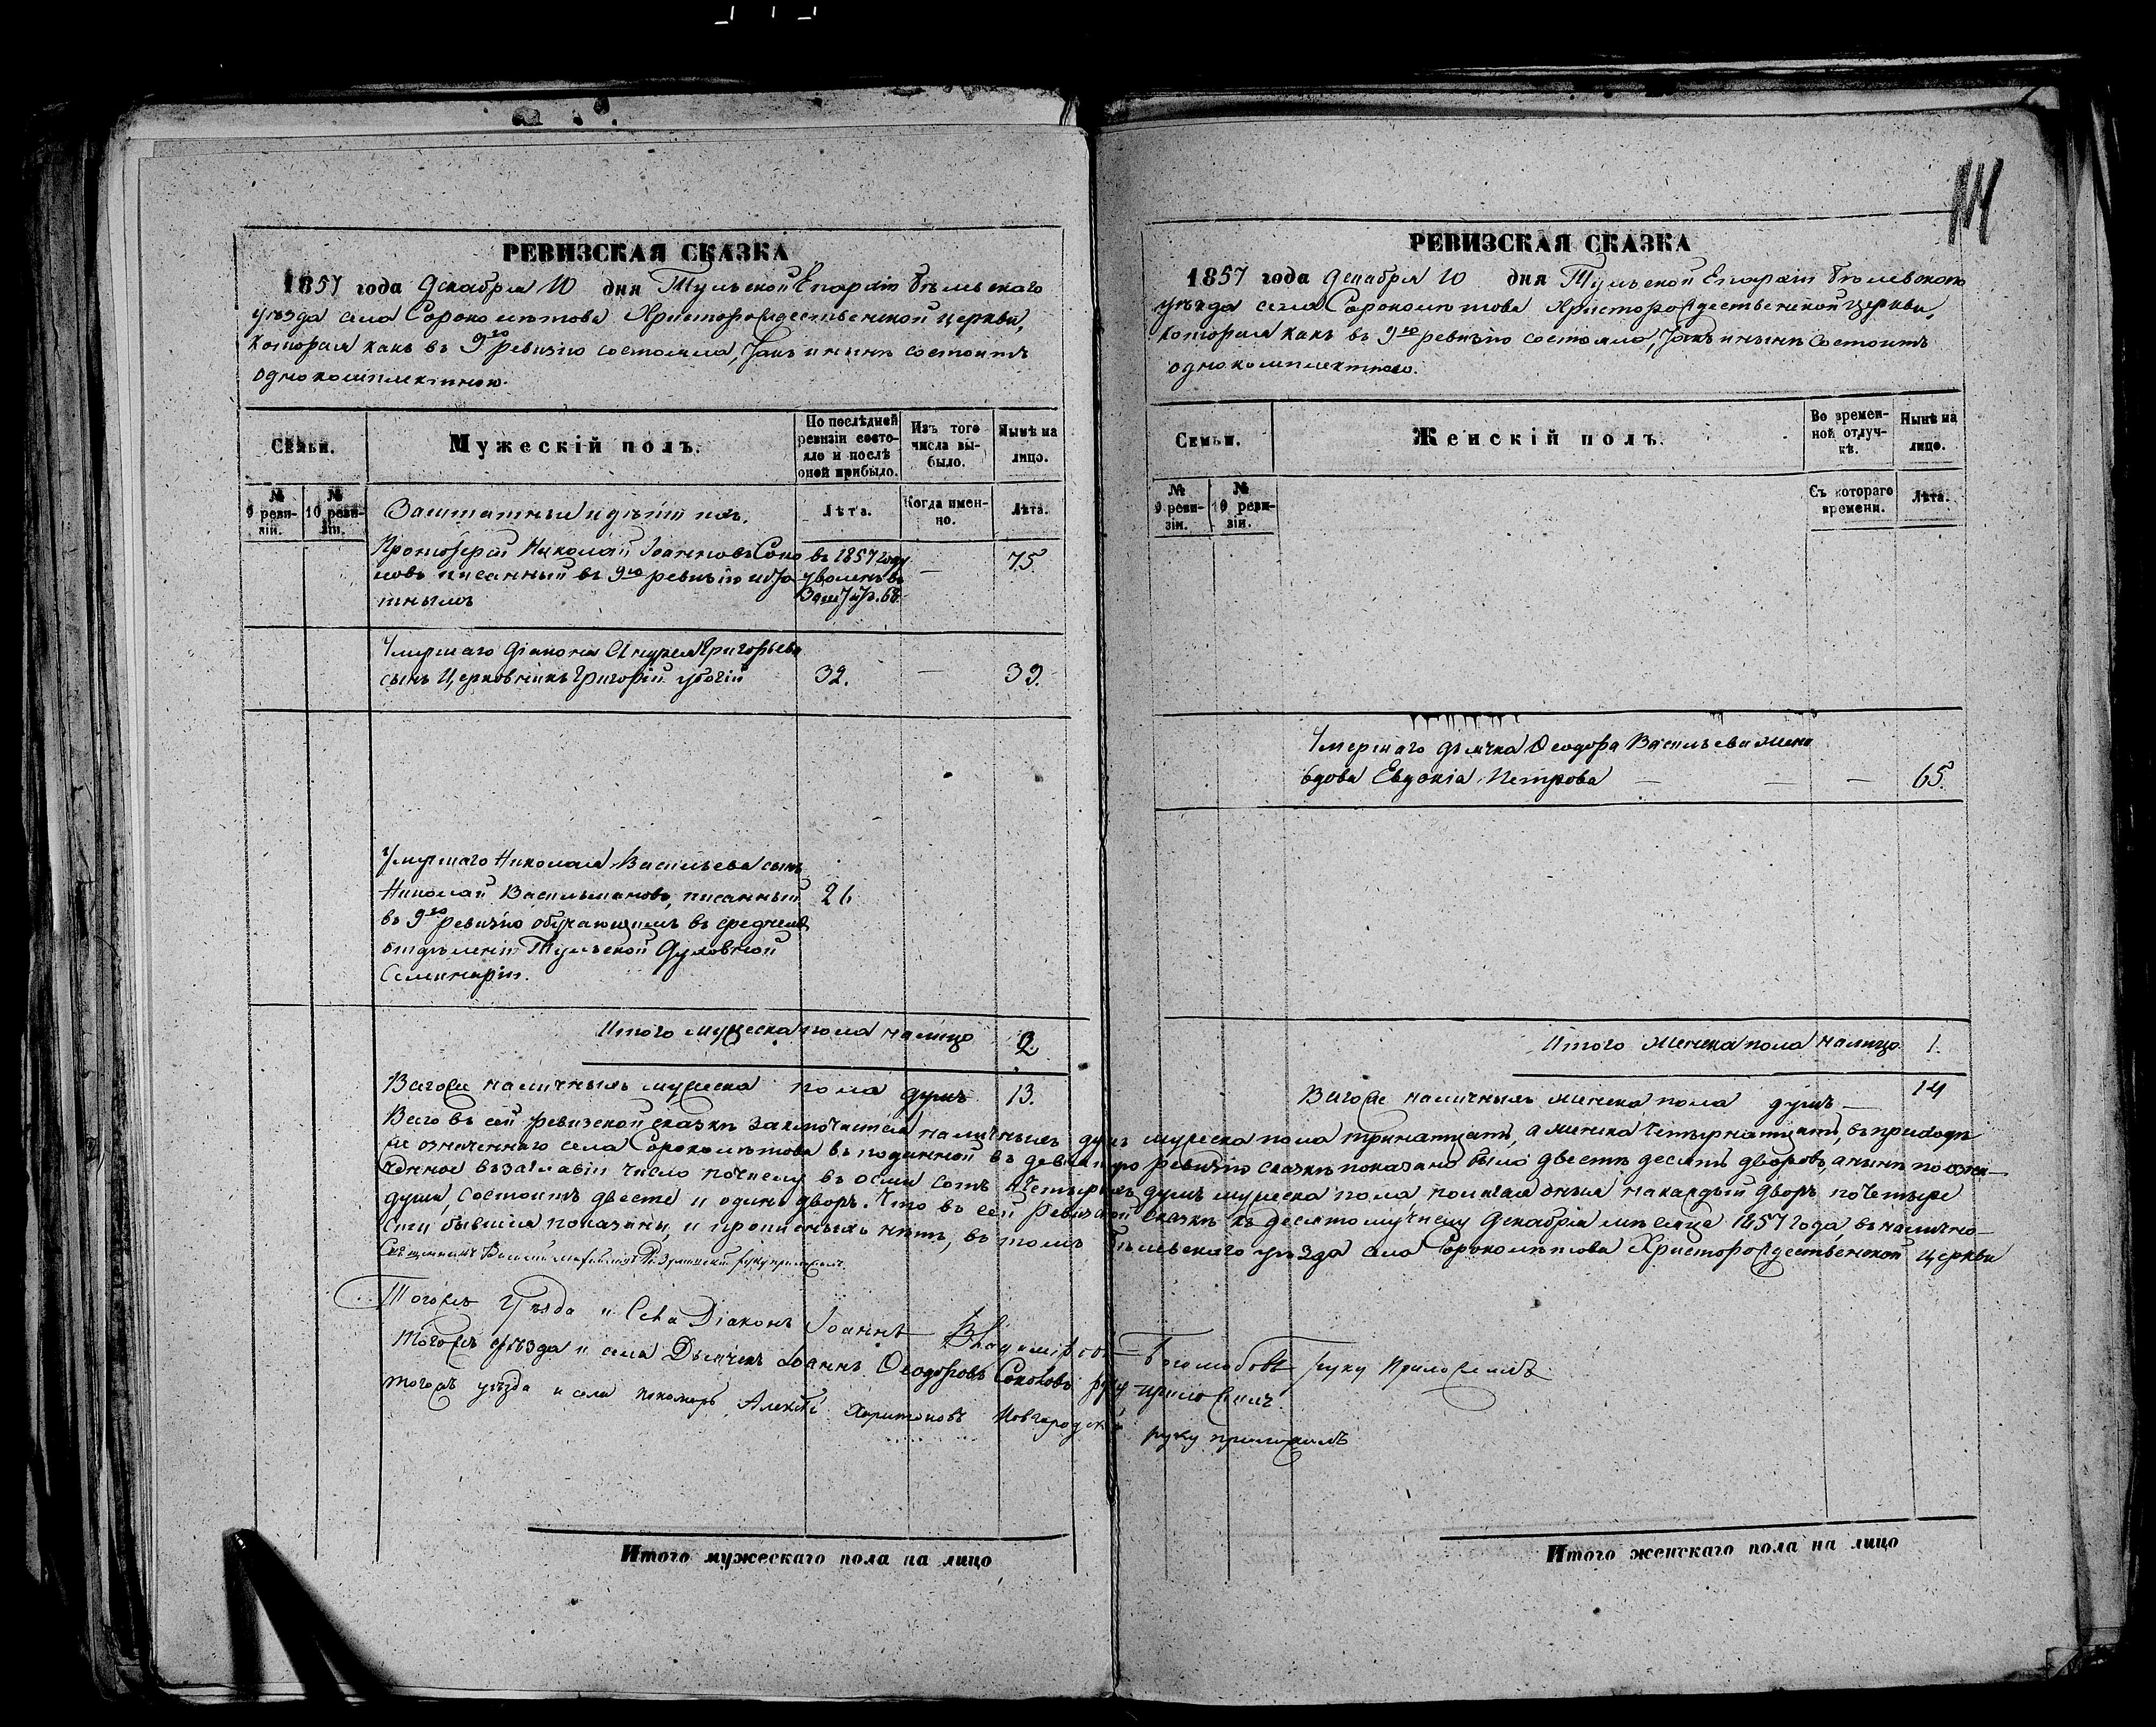 114
РЕВИЗСКАЯ СКАЗКА
1857 года Декабря 10 дня Тульской Епархіи Бѣлевскаго
уѣзда села Сороколѣтова Христорождественской церкви,
которая какъ въ 9ю ревизію состояла, такъ и нынѣ состоитъ
однокомплектною.
Семьи.
Мужескій полъ.
По послѣдней ревизіи состояло и послѣ оной прибыло.
Изъ того числа выбыло.
Нынѣ на лицо.
№ 9 ревизіи.
№ 10 ревизіи.
Заштатные и дѣти ихъ.
Лѣта.
Когда именно.
Лѣта.
Протоіерей Николай Іоанновъ Соко въ 1857 году — 75
ловъ писанный въ 9ю ревизію уволенъ въ
тнымъ
Умершаго діакона Андрея Григорьева
сынъ Церковникъ Григорій убогій 32. — 39.
Умершаго Николая Васильева сынъ
Николай Васильчиковъ, писанный 26
въ 9ю ревизію обучающимъ въ среднемъ
отдѣленіи Тульской Духовной
Семинаріи.
Итого мужеска пола на лицо 2.
Вагоже наличныхъ мужеска пола душъ 13.
РЕВИЗСКАЯ СКАЗКА
1857 года Декабря 10 дня Тульской Епархіи Бѣлевскаго
уѣзда села Сороколѣтова Христорождественской церкви,
которая какъ въ 9ю ревизію состояла, такъ и нынѣ состоитъ
однокомплектною.
Семьи.
Женскій полъ.
Во временной отлучкѣ.
Нынѣ на лицо.
№ 9 ревизіи.
№ 10 ревизіи.
Съ котораго времени.
Лѣта.
Умершаго дьячка Ѳеодора Васильева жена
вдова Евдокія Петрова — — — 65.
Итого женска пола на лицо 1.
наличныхъ женска пола душъ — 14
Всего въ сей ревизской сказкѣ заключается наличныхъ душъ мужеска пола тринатцать, а женска четырнатцать, въ приходѣ
же означеннаго села Сороколѣтова въ поданной въ девятую ревизію сказкѣ показано было двести десять дворовъ, а нынѣ по озна-
ченное въ заглавіи число почему въ осми сотъ четырехъ душъ мужеска пола полагая оныя на каждый дворъ по четыре
души, состоитъ двести и одинъ дворъ. Что въ сей ревизской сказкѣ къ десятому числу Декабря мѣсяца 1857 года, въ налично-
сти бывшія показаны, и прописныхъ нѣтъ, въ томъ Бѣлевскаго уѣзда села Сороколѣтова Христорождественской церкви
Священникъ Василій руку приложилъ.
Тогожъ Уѣзда и Села Діаконъ Іоаннъ Боголюбовъ руку приложилъ
Тогожъ уѣзда и села Дьячекъ Іоаннъ Ѳеодоровъ Соколовъ руку приложилъ.
Тогожъ уѣзда и села пономарь Алексѣй Харитоновъ Новгородскій руку приложилъ
Итого мужескаго пола на лицо
Итого женскаго пола на лицо